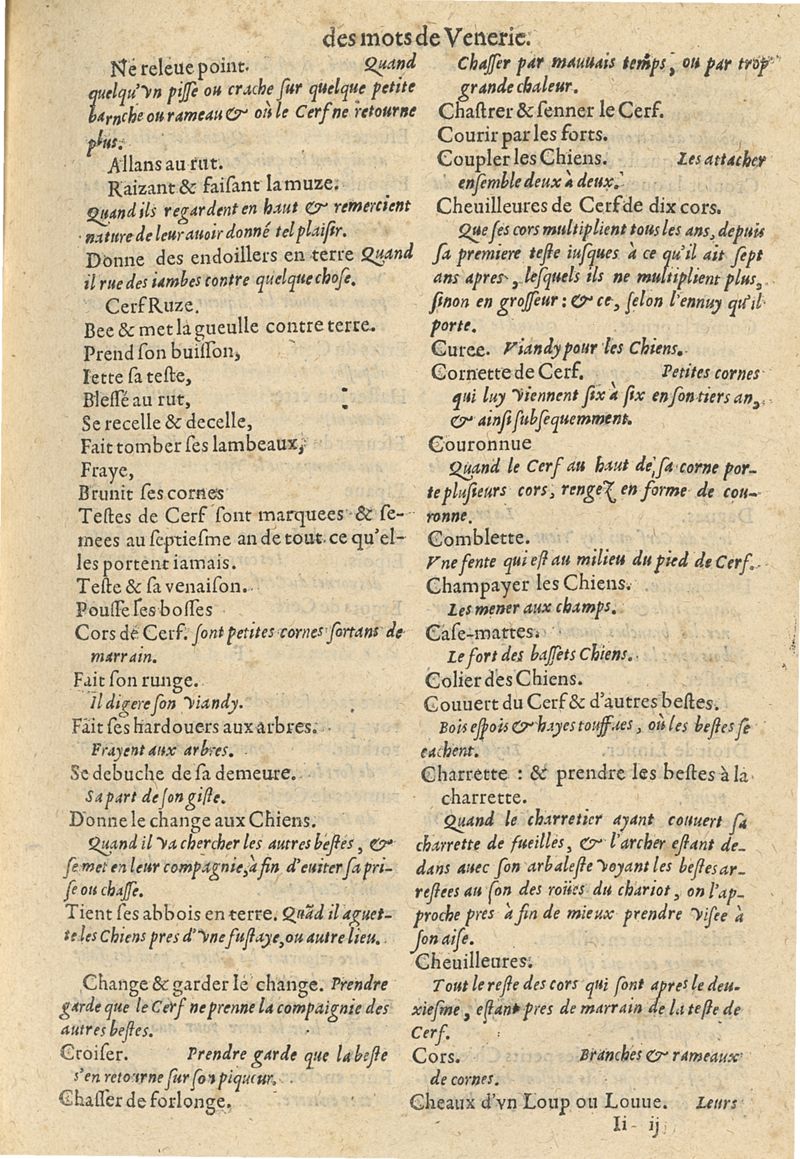 des mots de Venerie.
Ne releue point. Quand
quelqu'vn pisse ou crache sur quelque petite
barnche ou rameau & où le Cerf ne retourne
plus.
Allans au rut.
Raizant & faisant la muze.
Quand ils regardent en haut & remercient
nature de leur auoir donné tel plaisir.
Donne des endoillers en terre Quand
il rue des iambes contre quelque chose.
Cerf Ruze.
Bee & met la gueulle contre terre.
Prend son buisson,
Iette sa teste,
Blessé au rut,
Se recelle & decelle,
Fait tomber ses lambeaux,
Fraye,
Brunit ses cornes
Testes de Cerf sont marquees & se-
mees au septiesme an de tout ce qu'el-
les portent iamais.
Teste & sa venaison.
Pousse ses bosses
Cors de Cerf. sont petites cornes sortans de
marrain.
Fait son runge.
Il digere son viandy.
Fait ses hardouers aux arbres.
Frayent aux arbres.
Se debuche de sa demeure.
Sa part de son giste.
Donne le change aux Chiens.
Quand il va chercher les autres bestes, &
se met en leur compagnie, à fin d'euiter sa pri-
se ou chasse.
Tient ses abbois en terre. Quãd il aguet-
te les Chiens pres d'vne fustaye, ou autre lieu.
Change & garder le change. Prendre
garde que le Cerf ne prenne la compaignie des
autres bestes.
Croiser. Prendre garde que la beste
s'en retourne sur son piqueur.
Chasser de forlonge.
Chasser par mauuais temps, ou par trop
grande chaleur.
Chastrer & senner le Cerf.
Courir par les forts.
Coupler les Chiens. Les attacher
ensemble deux à deux.
Cheuilleures de Cerf de dix cors.
Que ses cors multiplient tous les ans, depuis
sa premiere teste iusques à ce qu'il ait sept
ans apres, lesquels ils ne multiplient plus,
sinon en grosseur: & ce, selon l'ennuy qu'il
porte.
Curee. Viandy pour les Chiens.
Cornette de Cerf. Petites cornes
qui luy viennent six à six en son tiers an,
& ainsi subsequemment.
Couronnue
Quand le Cerf au haut de sa corne por-
te plusieurs cors, rengez en forme de cou-
ronne.
Comblette.
Vne fente qui est au milieu du pied de Cerf.
Champayer les Chiens.
Les mener aux champs.
Case-mattes.
Le fort des bassets Chiens.
Colier des Chiens.
Couuert du Cerf & d'autres bestes.
Bois espois & hayes touffues, où les bestes se
cachent.
Charrette : & prendre les bestes à la
charrette.
Quand le charretier ayant couuert sa
charrette de fueilles, & l'archer estant de-
dans auec son arbaleste voyant les bestes ar-
restees au son des roües du chariot, on l'ap-
proche pres à fin de mieux prendre visee à
son aise.
Cheuilleures.
Tout le reste des cors qui sont apres le deu-
xiesme, estant pres de marrain de la teste de
Cerf.
Cors. Branches & rameaux
de cornes.
Cheaux d'vn Loup ou Louue. Leurs
Ii ij